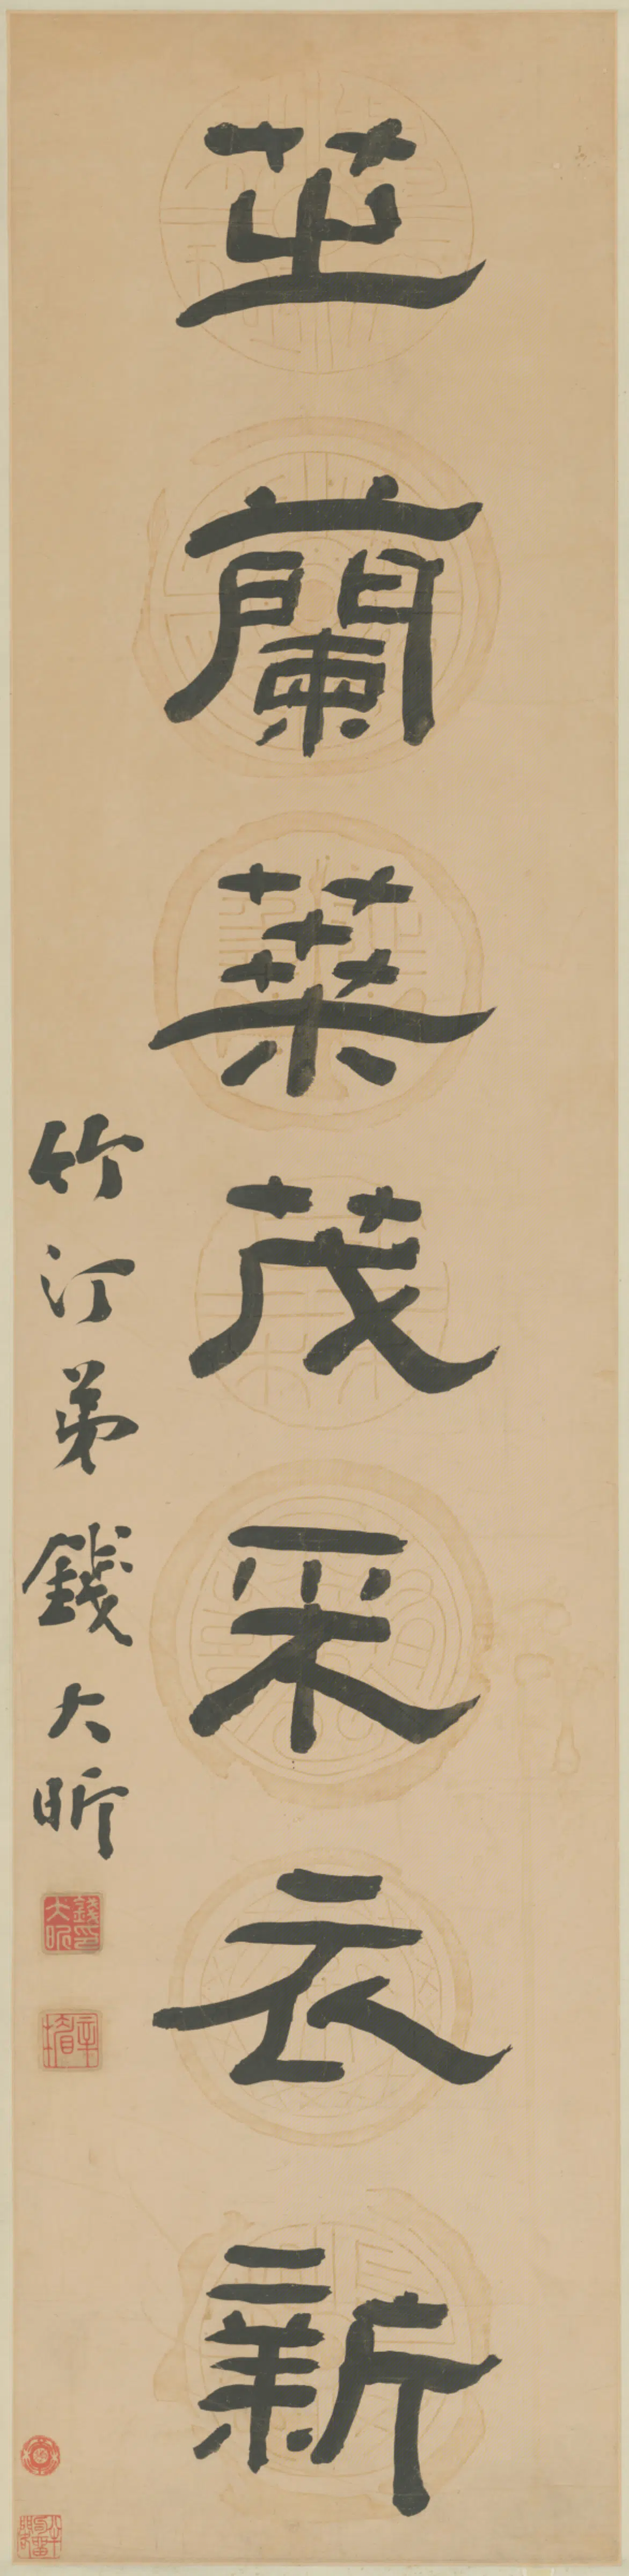 芝蘭葉茂采衣新
竹汀弟錢大昕
錢印大昕
辛楣